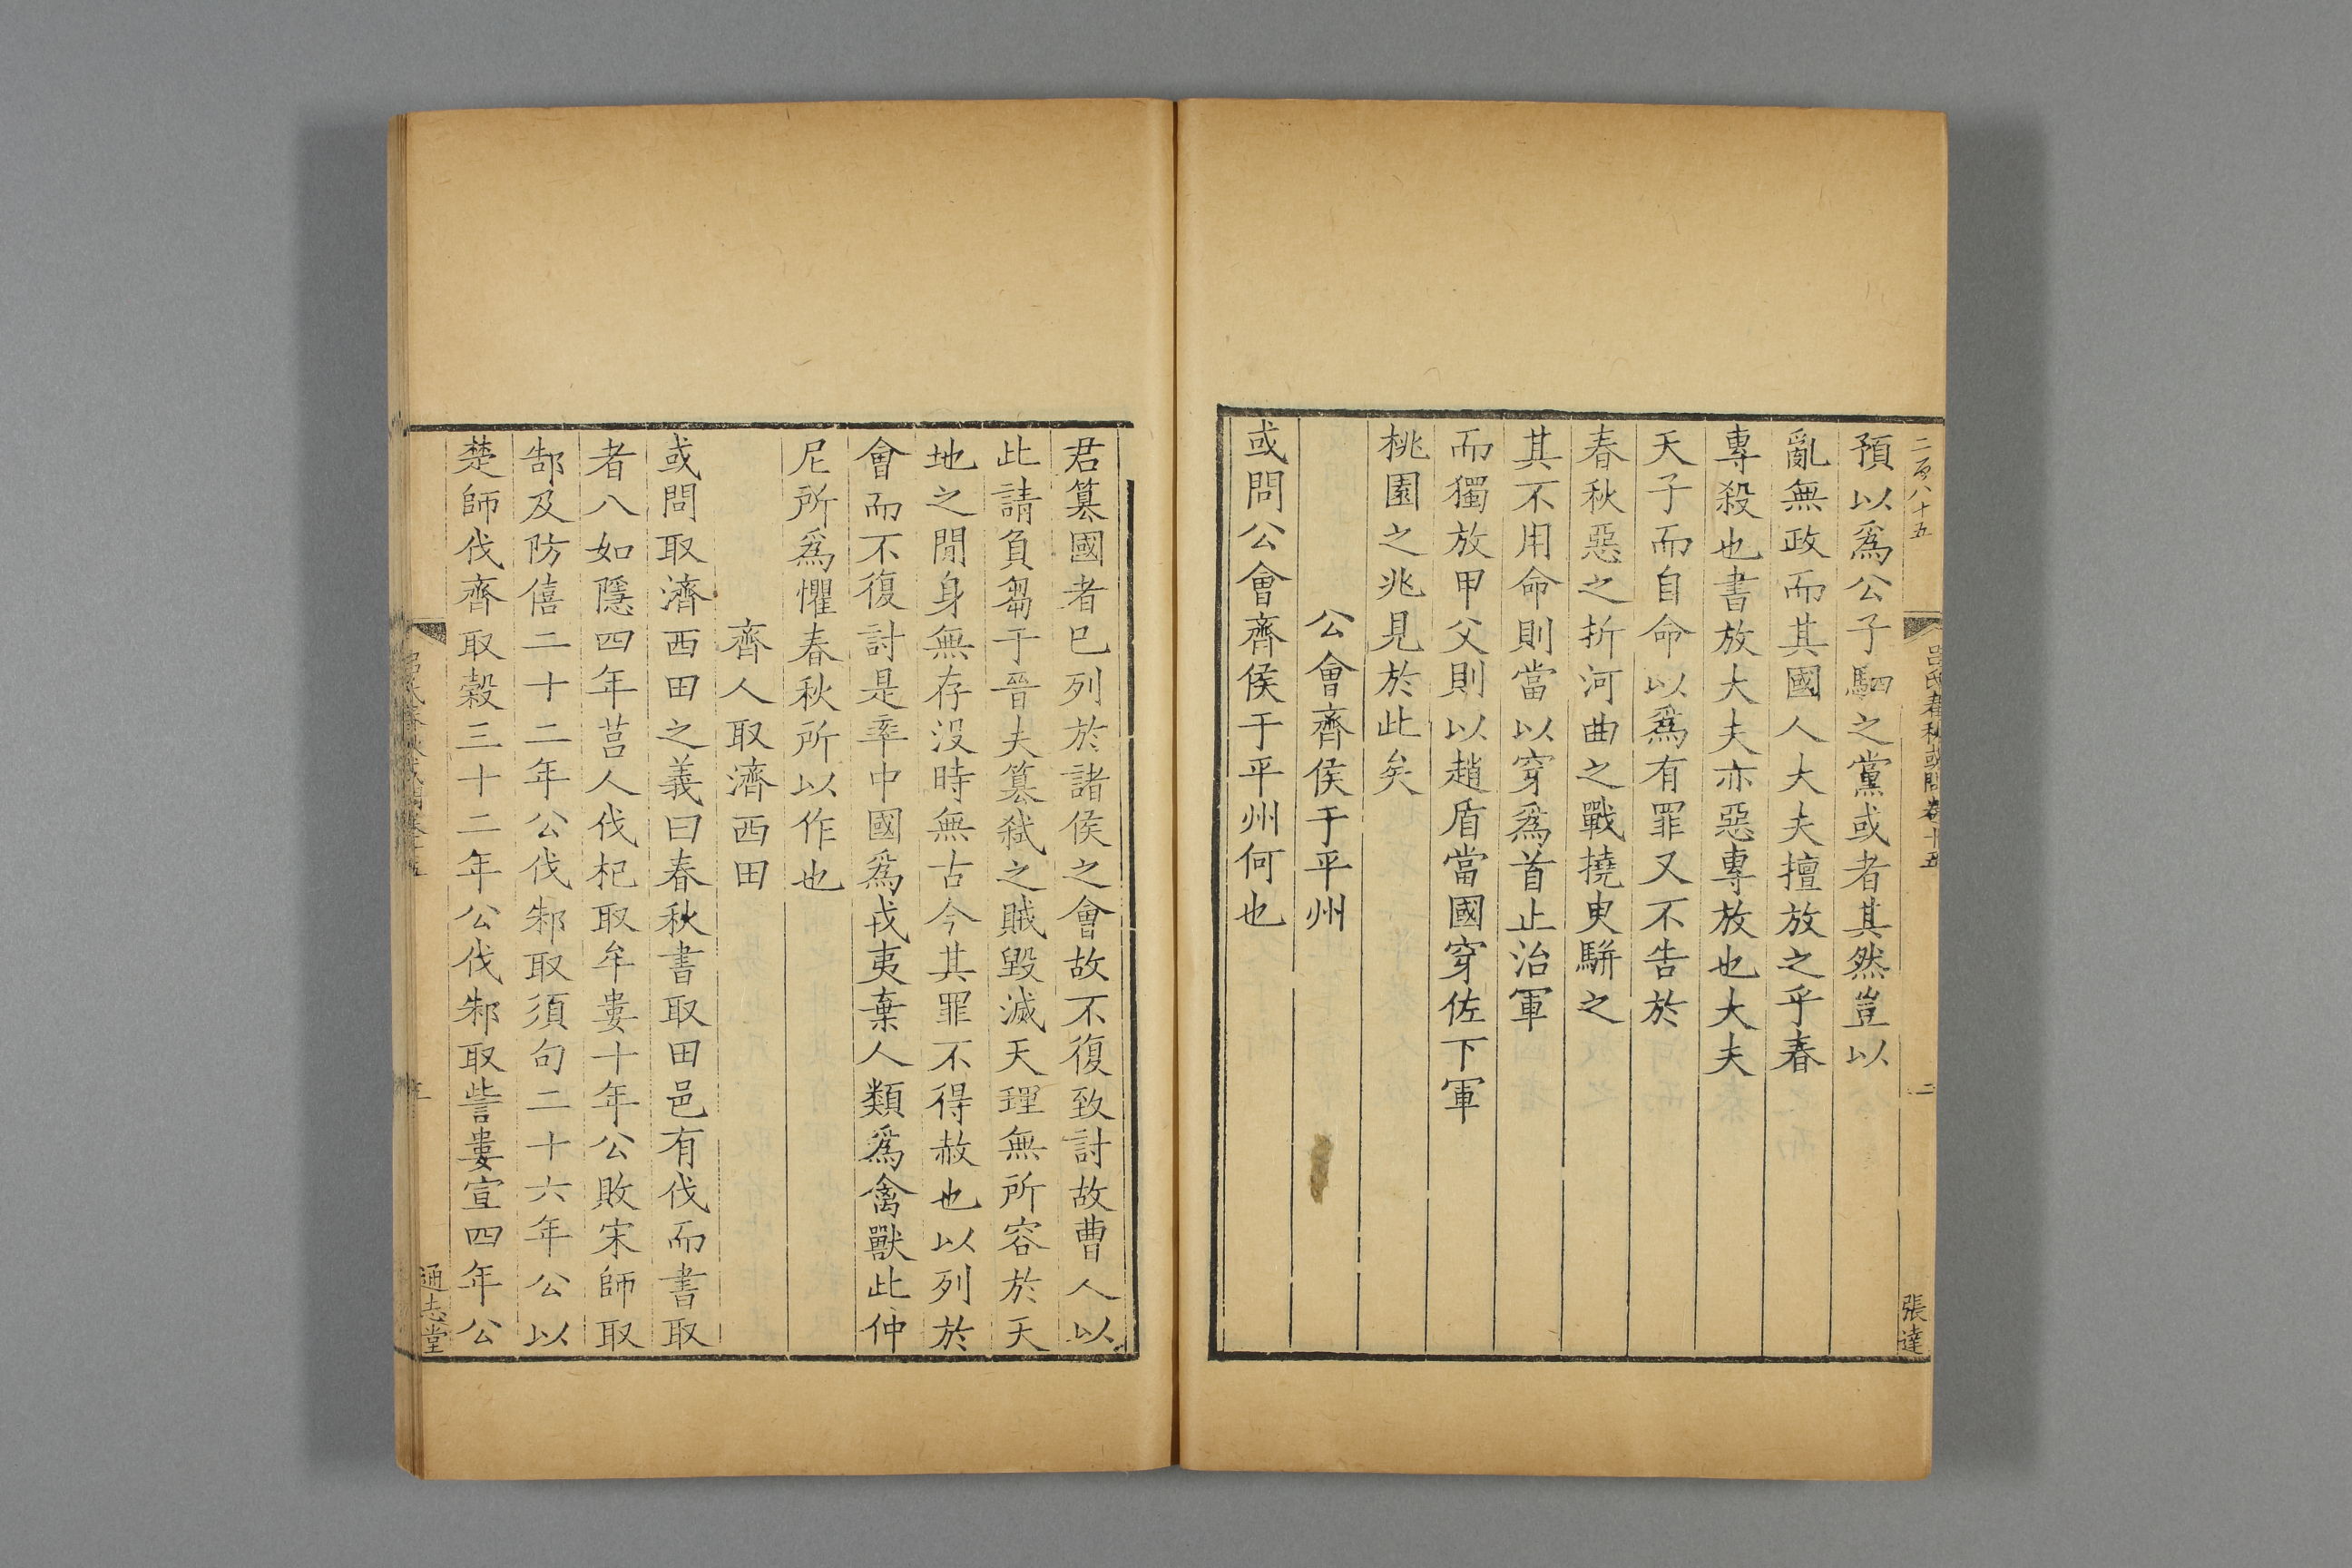 二百八十五
呂氏春秋或問卷十五
二
張達
預以爲公子駟之黨或者其然豈以
亂無政而其國人大夫擅放之乎春
專殺也書放大夫亦惡專放也大夫
天子而自命以爲有罪又不告於
春秋惡之折河曲之戰撓臾駢之
其不用命則當以穿爲首止治軍
而獨放甲父則以趙盾當國穿佐下軍
桃園之兆見於此矣
公會齊侯于平州
或問公會齊侯于平州何也
君篡國者巳列於諸侯之會故不復致討故曹人以
此請負芻于晉夫篡弒之賊毀滅天理無所容於天
地之閒身無存没時無古今其罪不得赦也以列於
會而不復討是率中國爲戎夷棄人類爲禽獸此仲
尼所爲懼春秋所以作也
齊人取濟西田
或問取濟西田之義曰春秋書取田邑有伐而書取
者八如隱四年莒人伐杞取牟婁十年公敗宋師取
郜及防僖二十二年公伐邾取須句二十六年公以
楚師伐齊取穀三十二年公伐邾取訾婁宣四年公
呂氏春秋或問卷十五
通志堂